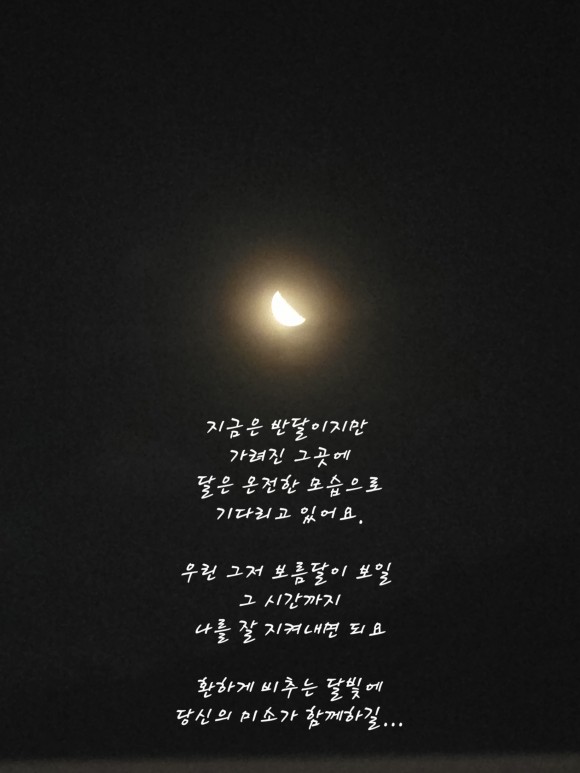 지금은 반달이지만
가려진 그곳에
달은 온전한 모습으로
기다리고 있어요.
우린 그저 보름달이 보일
그 시간까지
나를 잘 지켜내면 되요
환하게 비추는 달빛에
당신의 미소가 함께하길...